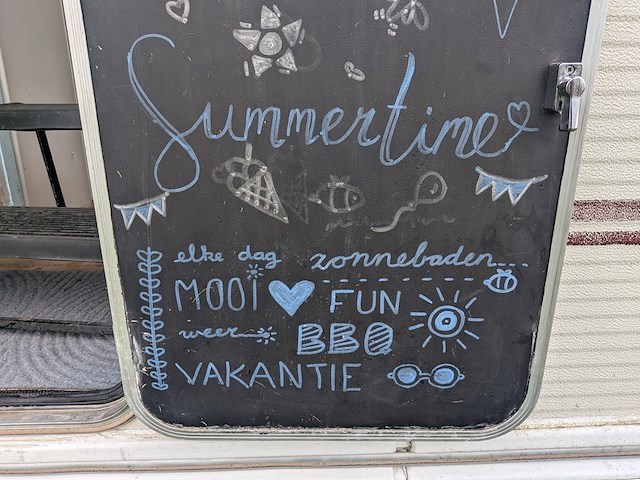 Summertime
elke dag zonnebaden
MOOI FUN
weer BBQ
VAKANTIE